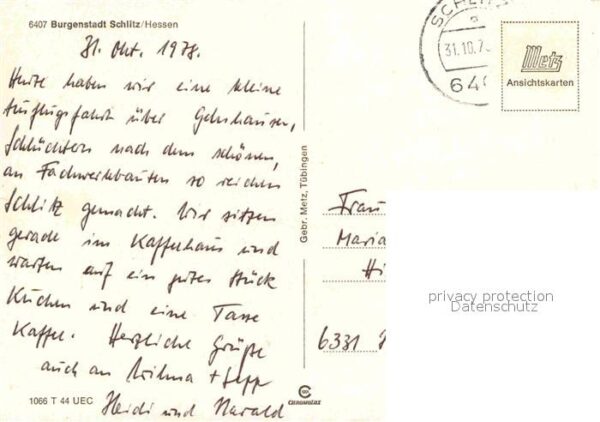 6407 Burgenstadt Schlitz/Hessen
31. Okt. 1978.
Heute haben wir eine kleine
Ausflugsfahrt über Gelnhausen,
Schlüchtern nach dem schönen,
an Fachwerkbauten so reichen
Schlitz gemacht. Wir sitzen
gerade im Kaffeehaus und
warten auf ein gutes Stück
Kuchen und eine Tasse
Kaffee. Herzliche Grüße
auch an Wilma + Sepp
Heidi und Harald
1066 T 44 UEC
CHROMOLUX
Gebr. Metz, Tübingen
SCHLITZ
31.10.7
640
Metz
Ansichtskarten
Frau
Maria
Hi
6331
privacy protection
Datenschutz